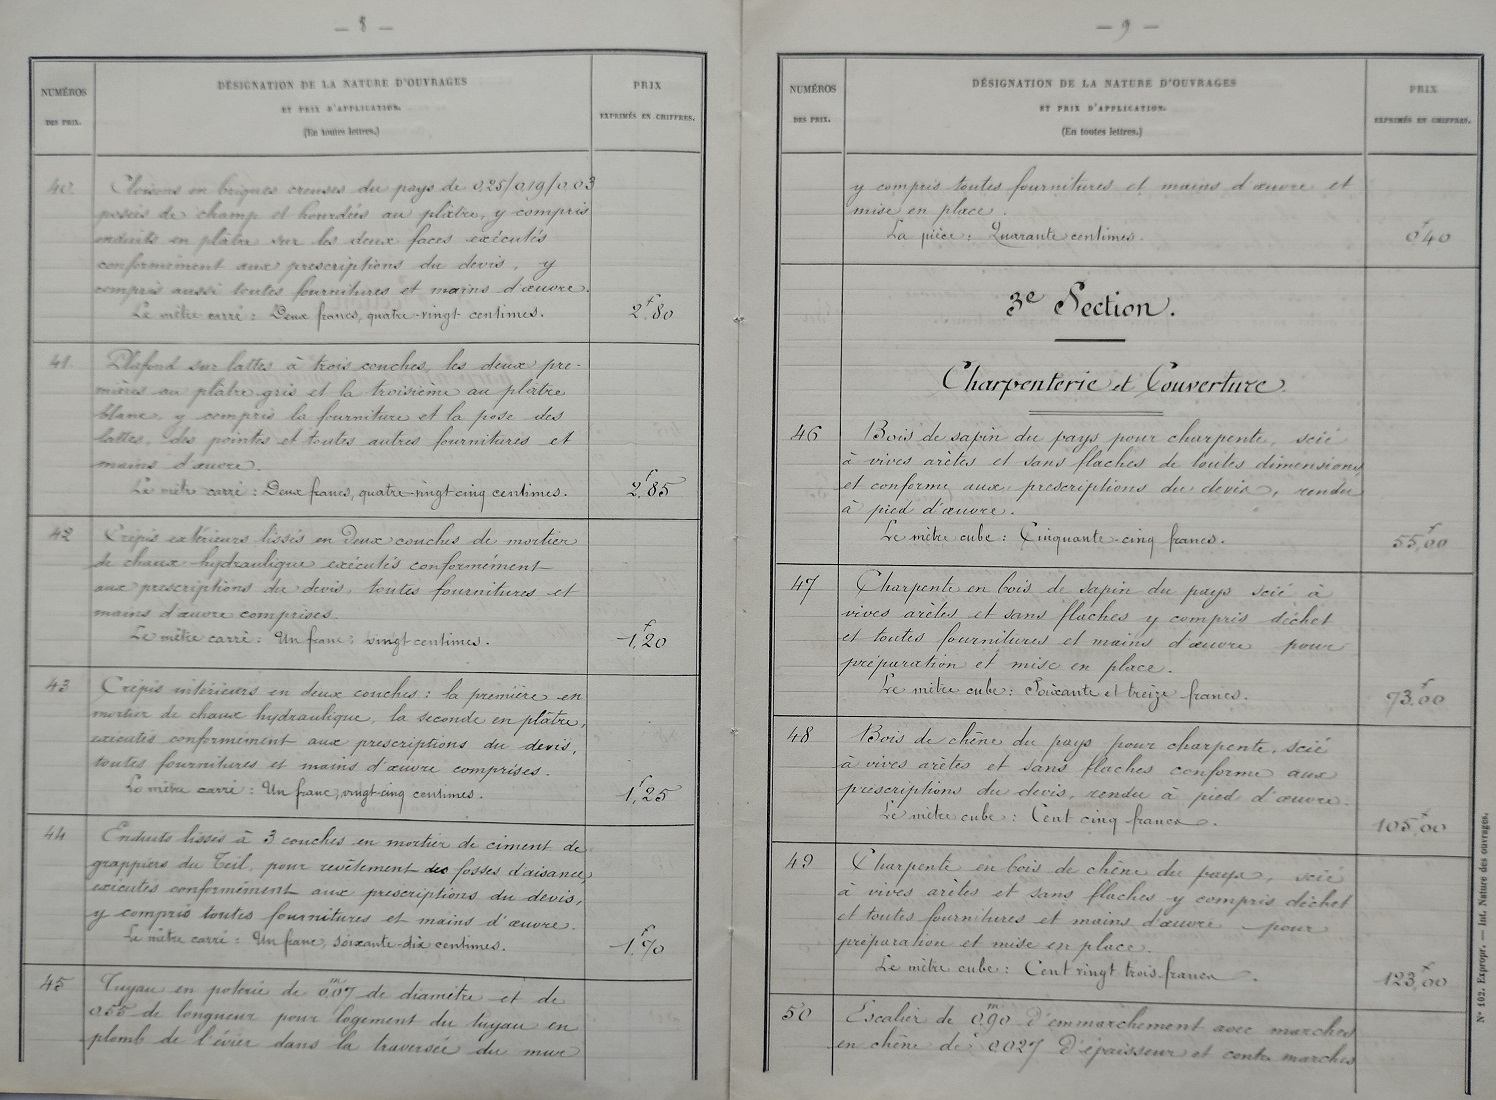 — 8 —
NUMÉROS
DES PRIX.
DÉSIGNATION DE LA NATURE D'OUVRAGES
ET PRIX D'APPLICATION.
(En toutes lettres.)
PRIX
EXPRIMÉS EN CHIFFRES.
40. Cloisons en briques creuses du pays de 0,25/0,19/0,03
posées de champ et hourdées au plâtre, y compris
enduits en plâtre sur les deux faces exécutés
conformément aux prescriptions du devis, y
compris aussi toutes fournitures et mains d'œuvre.
Le mètre carré : Deux francs, quatre-vingt centimes. 2f,80
41. Plafond sur lattes à trois couches, les deux pre-
mières au plâtre gris et la troisième au plâtre
blanc, y compris la fourniture et la pose des
lattes, des pointes et toutes autres fournitures et
mains d'œuvre.
Le mètre carré : Deux francs, quatre-vingt-cinq centimes. 2f,85
42 Crépis extérieurs lissés en deux couches de mortier
de chaux hydraulique exécutés conformément
aux prescriptions du devis, toutes fournitures et
mains d'œuvre comprises.
Le mètre carré : Un franc, vingt centimes. 1f,20
43 Crépis intérieurs en deux couches : la première en
mortier de chaux hydraulique, la seconde en plâtre,
exécutés conformément aux prescriptions du devis,
toutes fournitures et mains d'œuvre comprises.
Le mètre carré : Un franc, vingt-cinq centimes. 1f,25
44 Enduits lissés à 3 couches en mortier de ciment de
grappiers du Teil, pour revêtement des fosses d'aisances,
exécutés conformément aux prescriptions du devis,
y compris toutes fournitures et mains d'œuvre.
Le mètre carré : Un franc, soixante-dix centimes. 1f,70
45 Tuyau en poterie de 0m,07 de diamètre et de
0,55 de longueur pour logement du tuyau en
plomb de l'évier dans la traversée du mur
— 9 —
NUMÉROS
DES PRIX.
DÉSIGNATION DE LA NATURE D'OUVRAGES
ET PRIX D'APPLICATION.
(En toutes lettres.)
PRIX
EXPRIMÉS EN CHIFFRES.
y compris toutes fournitures et mains d'œuvre et
mise en place.
La pièce : Quarante centimes. 0f,40
3e Section.
Charpenterie et Couverture.
46 Bois de sapin du pays pour charpente, scié
à vives arêtes et sans flaches de toutes dimensions
et conforme aux prescriptions du devis, rendu
à pied d'œuvre.
Le mètre cube : Cinquante-cinq francs. 55f,00
47 Charpente en bois de sapin du pays scié à
vives arêtes et sans flaches y compris déchet
et toutes fournitures et mains d'œuvre pour
préparation et mise en place.
Le mètre cube : Soixante et treize francs. 73f,00
48 Bois de chêne du pays pour charpente, scié
à vives arêtes et sans flaches conforme aux
prescriptions du devis, rendu à pied d'œuvre.
Le mètre cube : Cent cinq francs. 105f,00
49 Charpente en bois de chêne du pays, scié
à vives arêtes et sans flaches y compris déchet
et toutes fournitures et mains d'œuvre pour
préparation et mise en place.
Le mètre cube : Cent vingt trois francs. 123f,00
50 Escalier de 0m,90 d'emmarchement avec marches
en chêne de 0,027 d'épaisseur et contre marches
N° 102. Expropr. — Int. Nature des ouvrages.